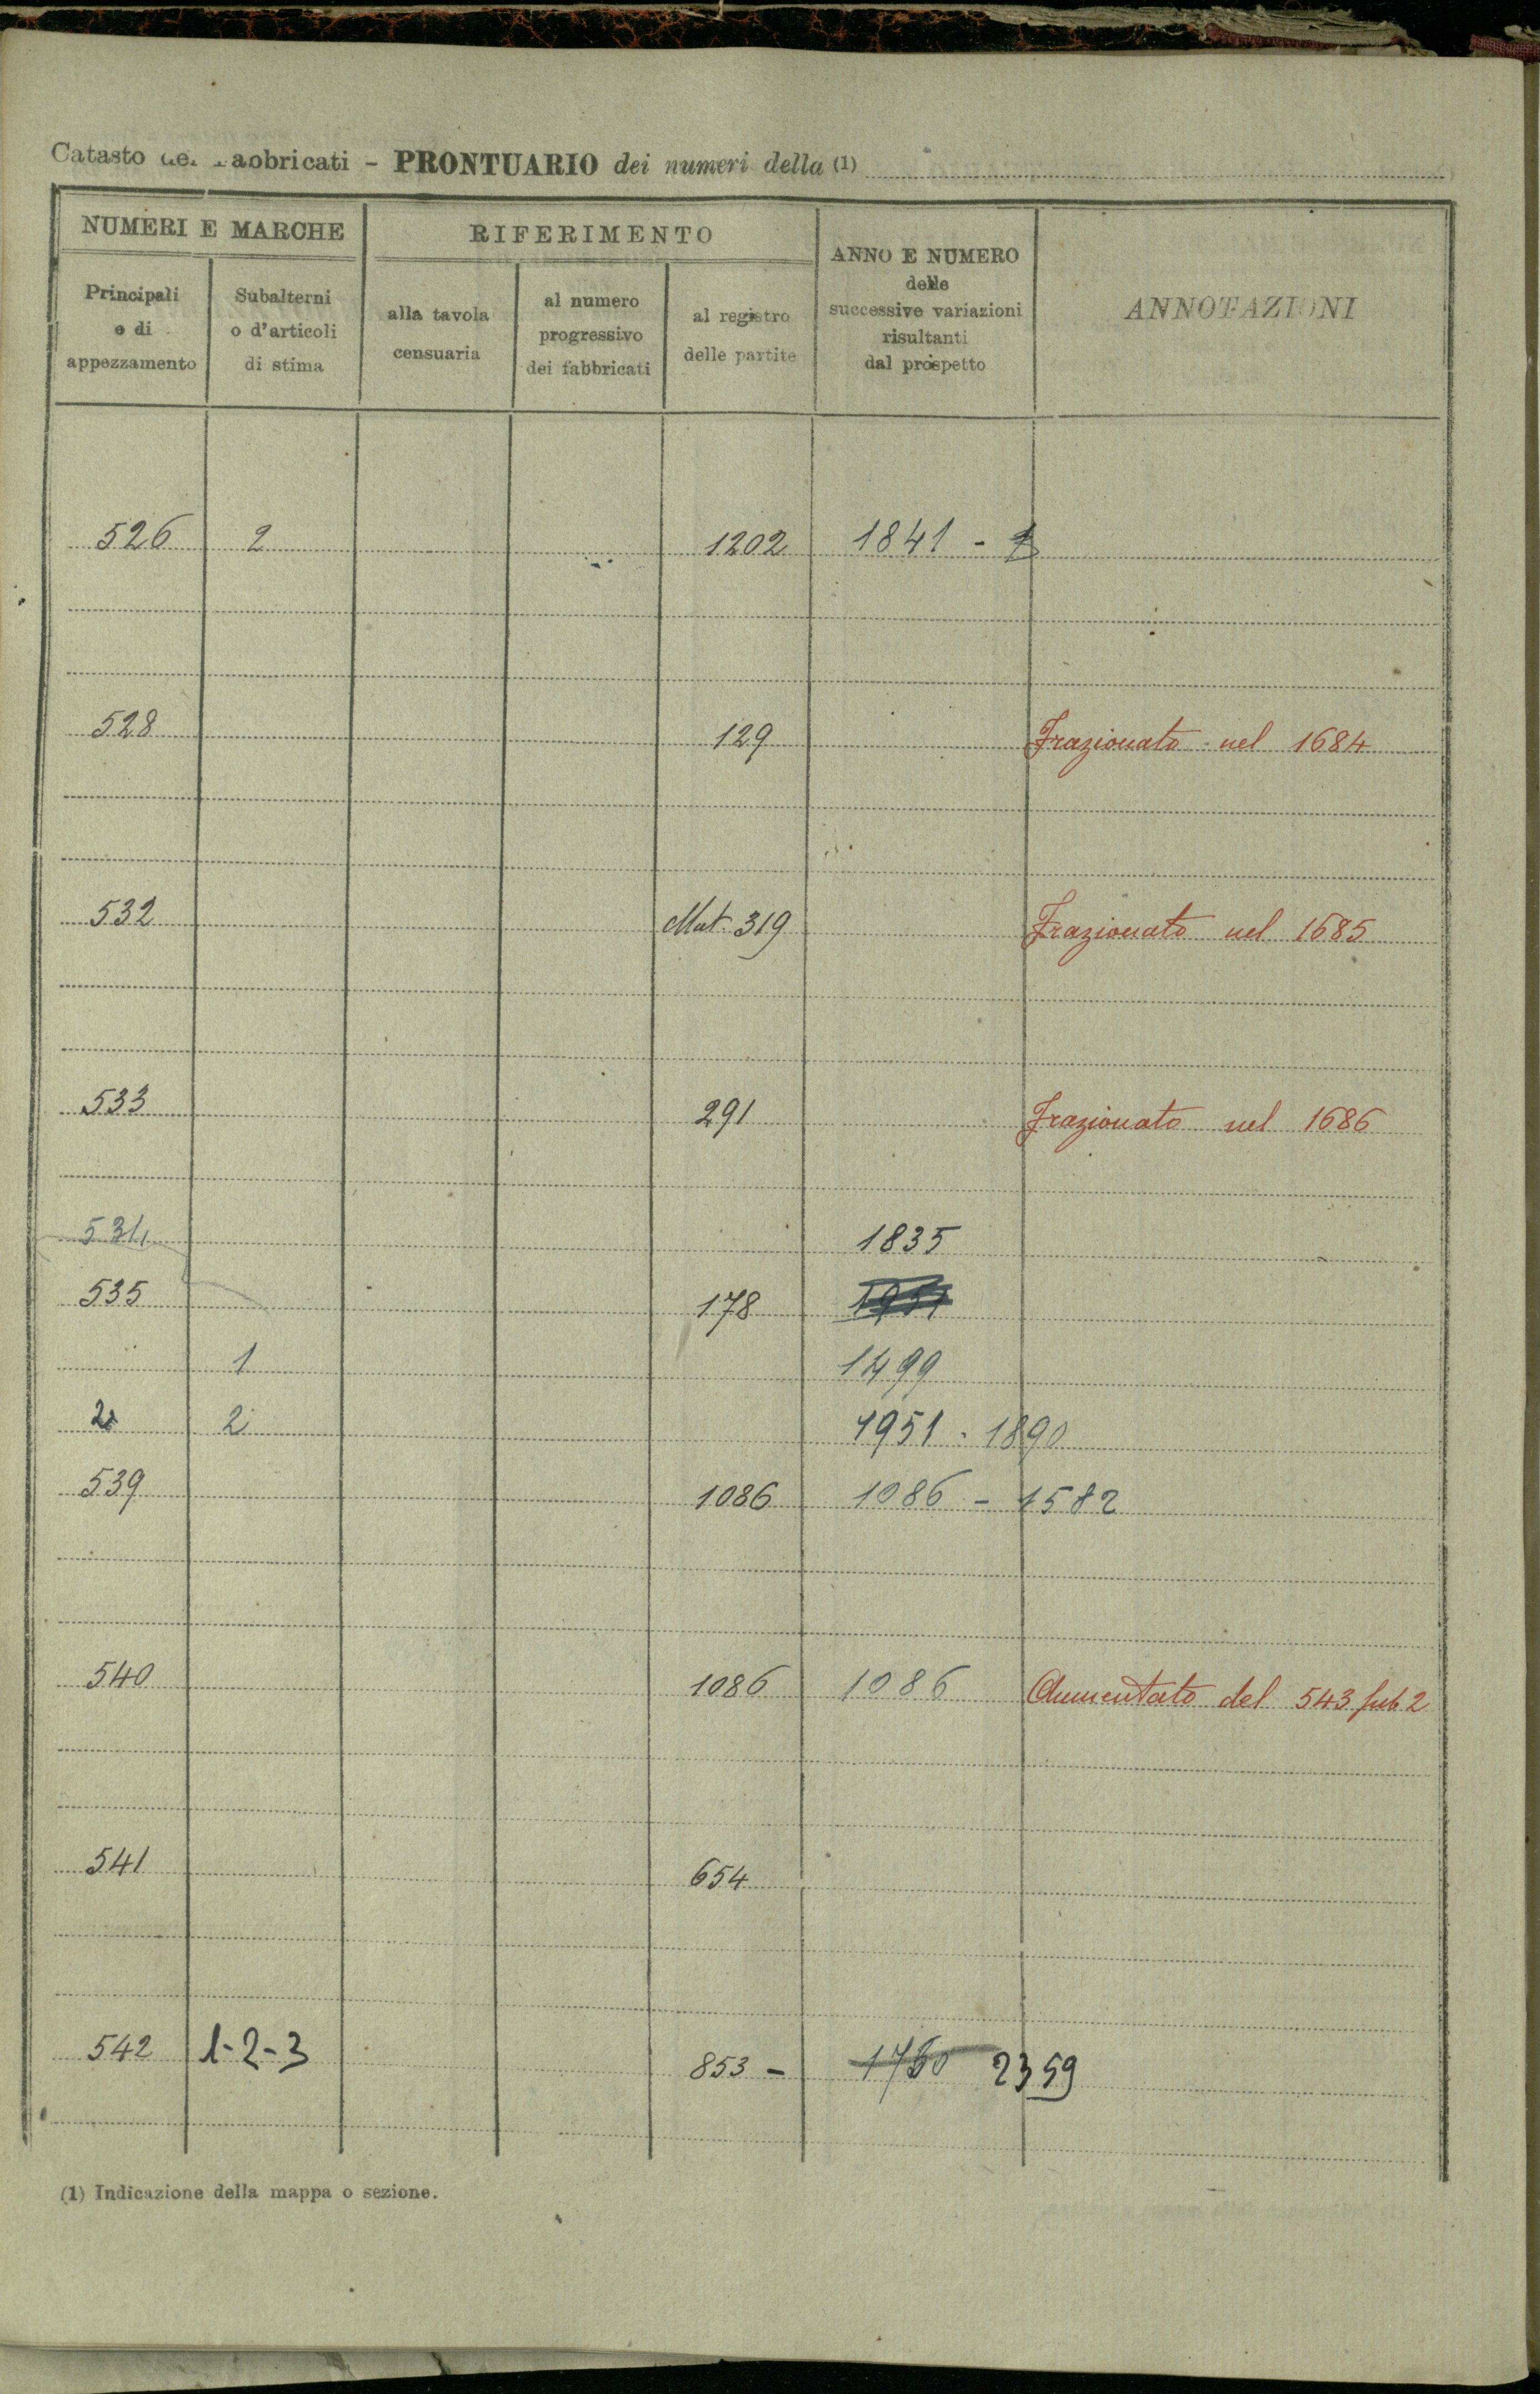 Catasto dei Fabbricati - PRONTUARIO dei numeri della (1)
NUMERI E MARCHE
RIFERIMENTO
ANNO E NUMERO
delle
successive variazioni
risultanti
dal prospetto
ANNOTAZIONI
Principali
e di
appezzamento
Subalterni
o d'articoli
di stima
alla tavola
censuaria
al numero
progressivo
dei fabbricati
al registro
delle partite
526 2 1202 1841 -
528 129 Frazionato nel 1684
532 Mat. 319 Frazionato nel 1685
533 291 Frazionato nel 1686
534 1835
535 178
1 1499
2 2 1951 - 1890
539 1086 1086 - 1582
540 1086 1086 Aumentato del 543 sub 2
541 654
542 1-2-3 853 - 1750 2359
(1) Indicazione della mappa o sezione.